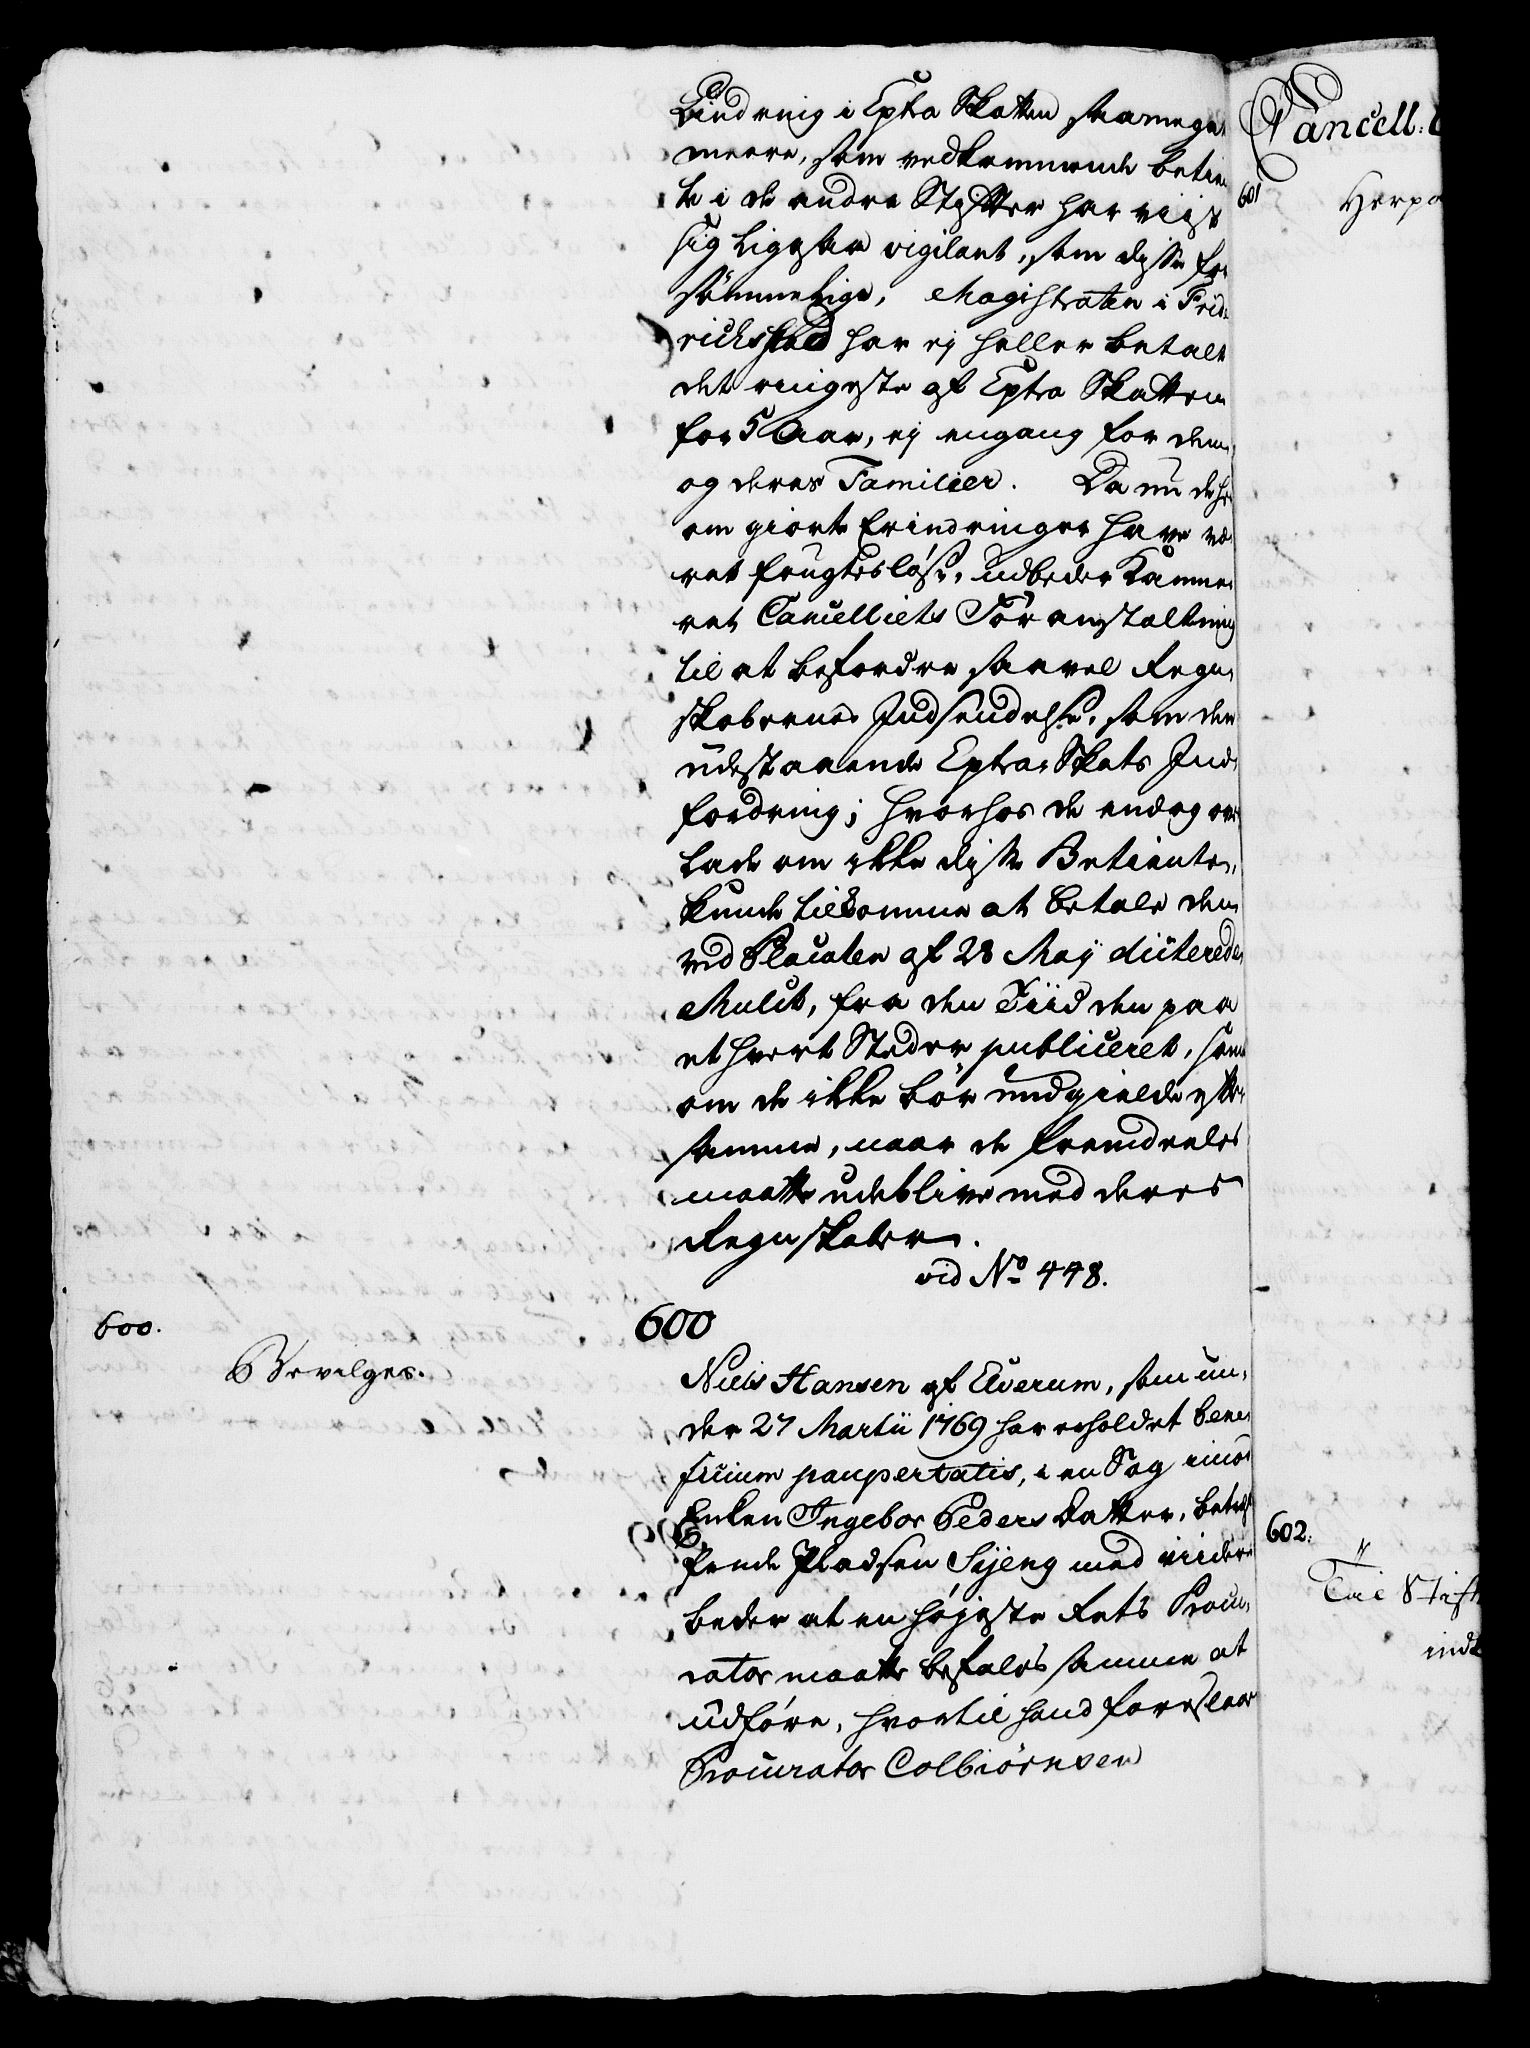 Lindring i Extra Skatten saameget
meere, som vedkommende betien
te i de andre Stifter har viist
sig ligesaa vigilant, som disse for
sömmelige, Magistraten i Frid
richshald har ej heller betalt
det ringeste af Extra Skatten
for 5 Aar, ej engang for dem
og deres Familier. Da nu de her
om giorte Erindringer have væ
ret frugtesløse, udbeder Kamme
ret Cancelliets Foranstaltning
til at befordre saavel Regn
skabernes Indsendelse, som den
udestaaende Extra Skats Ind
fordring; hvorhos de endog over
lade om ikke disse Betiente
kunde tilkomme at betale den
ved Placaten af 28 Maij dicterede
Mulct, fra den Tiid den paa
et hvert Steder publiceret, samt
om de ikke bør undgielde ytter
samme, naar de fremdeeles
maatte udeblive med deres
Regnskaber.
vid No 448.
600.
Bevilges.
600
Niels Hansen af Elverum, som un
der 27 Martii 1769 har erholdet bene
ficium paupertatis, i en Sag imod
Enken Ingebor Peders Datter, betref
fende Pladsen Sijeng med videre
beder at en højeste Rets Procu
rator maatte befales samme at
udføre, hvortil hand foreslaar
Procurator Colbiörnsen
Cancell:
601
602.
Til Stift